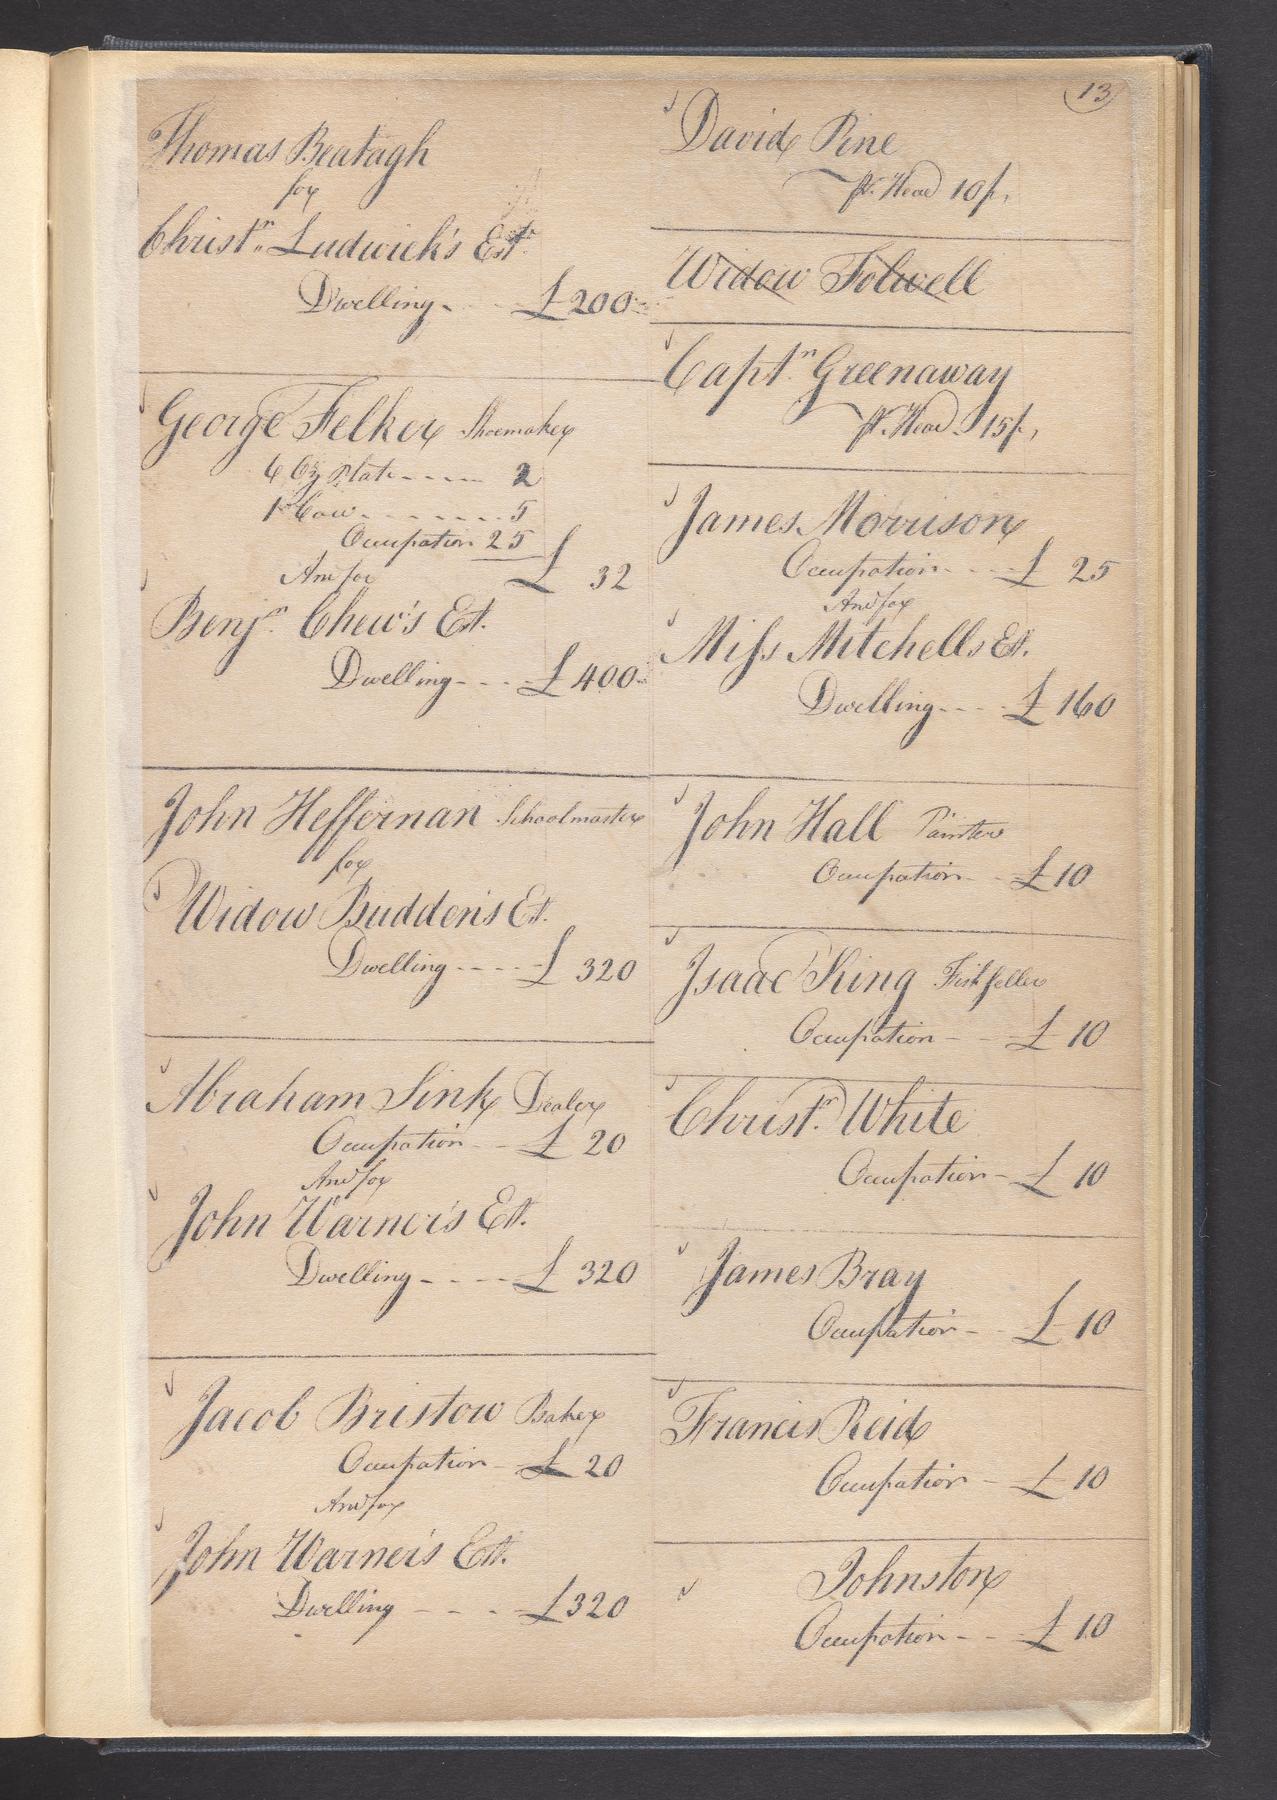 13
Thomas Beatagh
for
Christn. Ludwick's Est.
Dwelling - - £200
George Felker Shoemaker
6 Oz Plate - - - - 2
1 Cow - - - - - - - 5
Occupation 25
£ 32
And for
Benjn. Chew's Est.
Dwelling - - - £400
John Heffernan Schoolmaster
for
Widow Budden's Est.
Dwelling - - - - £ 320
Abraham Sink Dealer
Occupation - - £ 20
And for
John Warner's Est.
Dwelling - - - - £ 320
Jacob Bristow Baker
Occupation - £ 20
And for
John Warner's Est.
Dwelling - - - £320
David Pine
pr. Head 10/.
Widow Folwell
Captn. Greenaway
pr. Head 15/.
James Morrison
Occupation - - - £ 25
And for
Miss Mitchells Est.
Dwelling - - - - £ 160
John Hall Painter
Occupation - - £ 10
Isaac King Fish seller
Occupation - - £ 10
Christr. White
Occupation - £ 10
James Bray
Occupation - - £ 10
Francis Reid
Occupation - £ 10
Johnston
Occupation - - £ 10